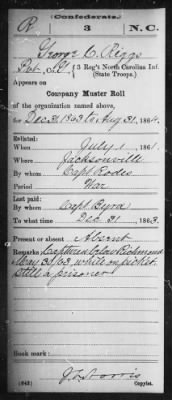 (Confederate.)
R 3 N.C.
George C. Riggs
Pvt., Co. 3 Reg't North Carolina Inf.
(State Troops.)
Appears on
Company Muster Roll
of the organization named above,
for Dec 31, 1863 to Aug 31, 1864.
Enlisted:
When July 1, 1861.
Where Jacksonville
By whom Capt Rodes
Period War
Last paid:
By whom Capt Byrd
To what time Dec 31, 1863.
Present or absent Absent
Remarks: Captured below Richmond
May 31/63 while on picket.
Still a prisoner
Book mark:
(642) Copyist.